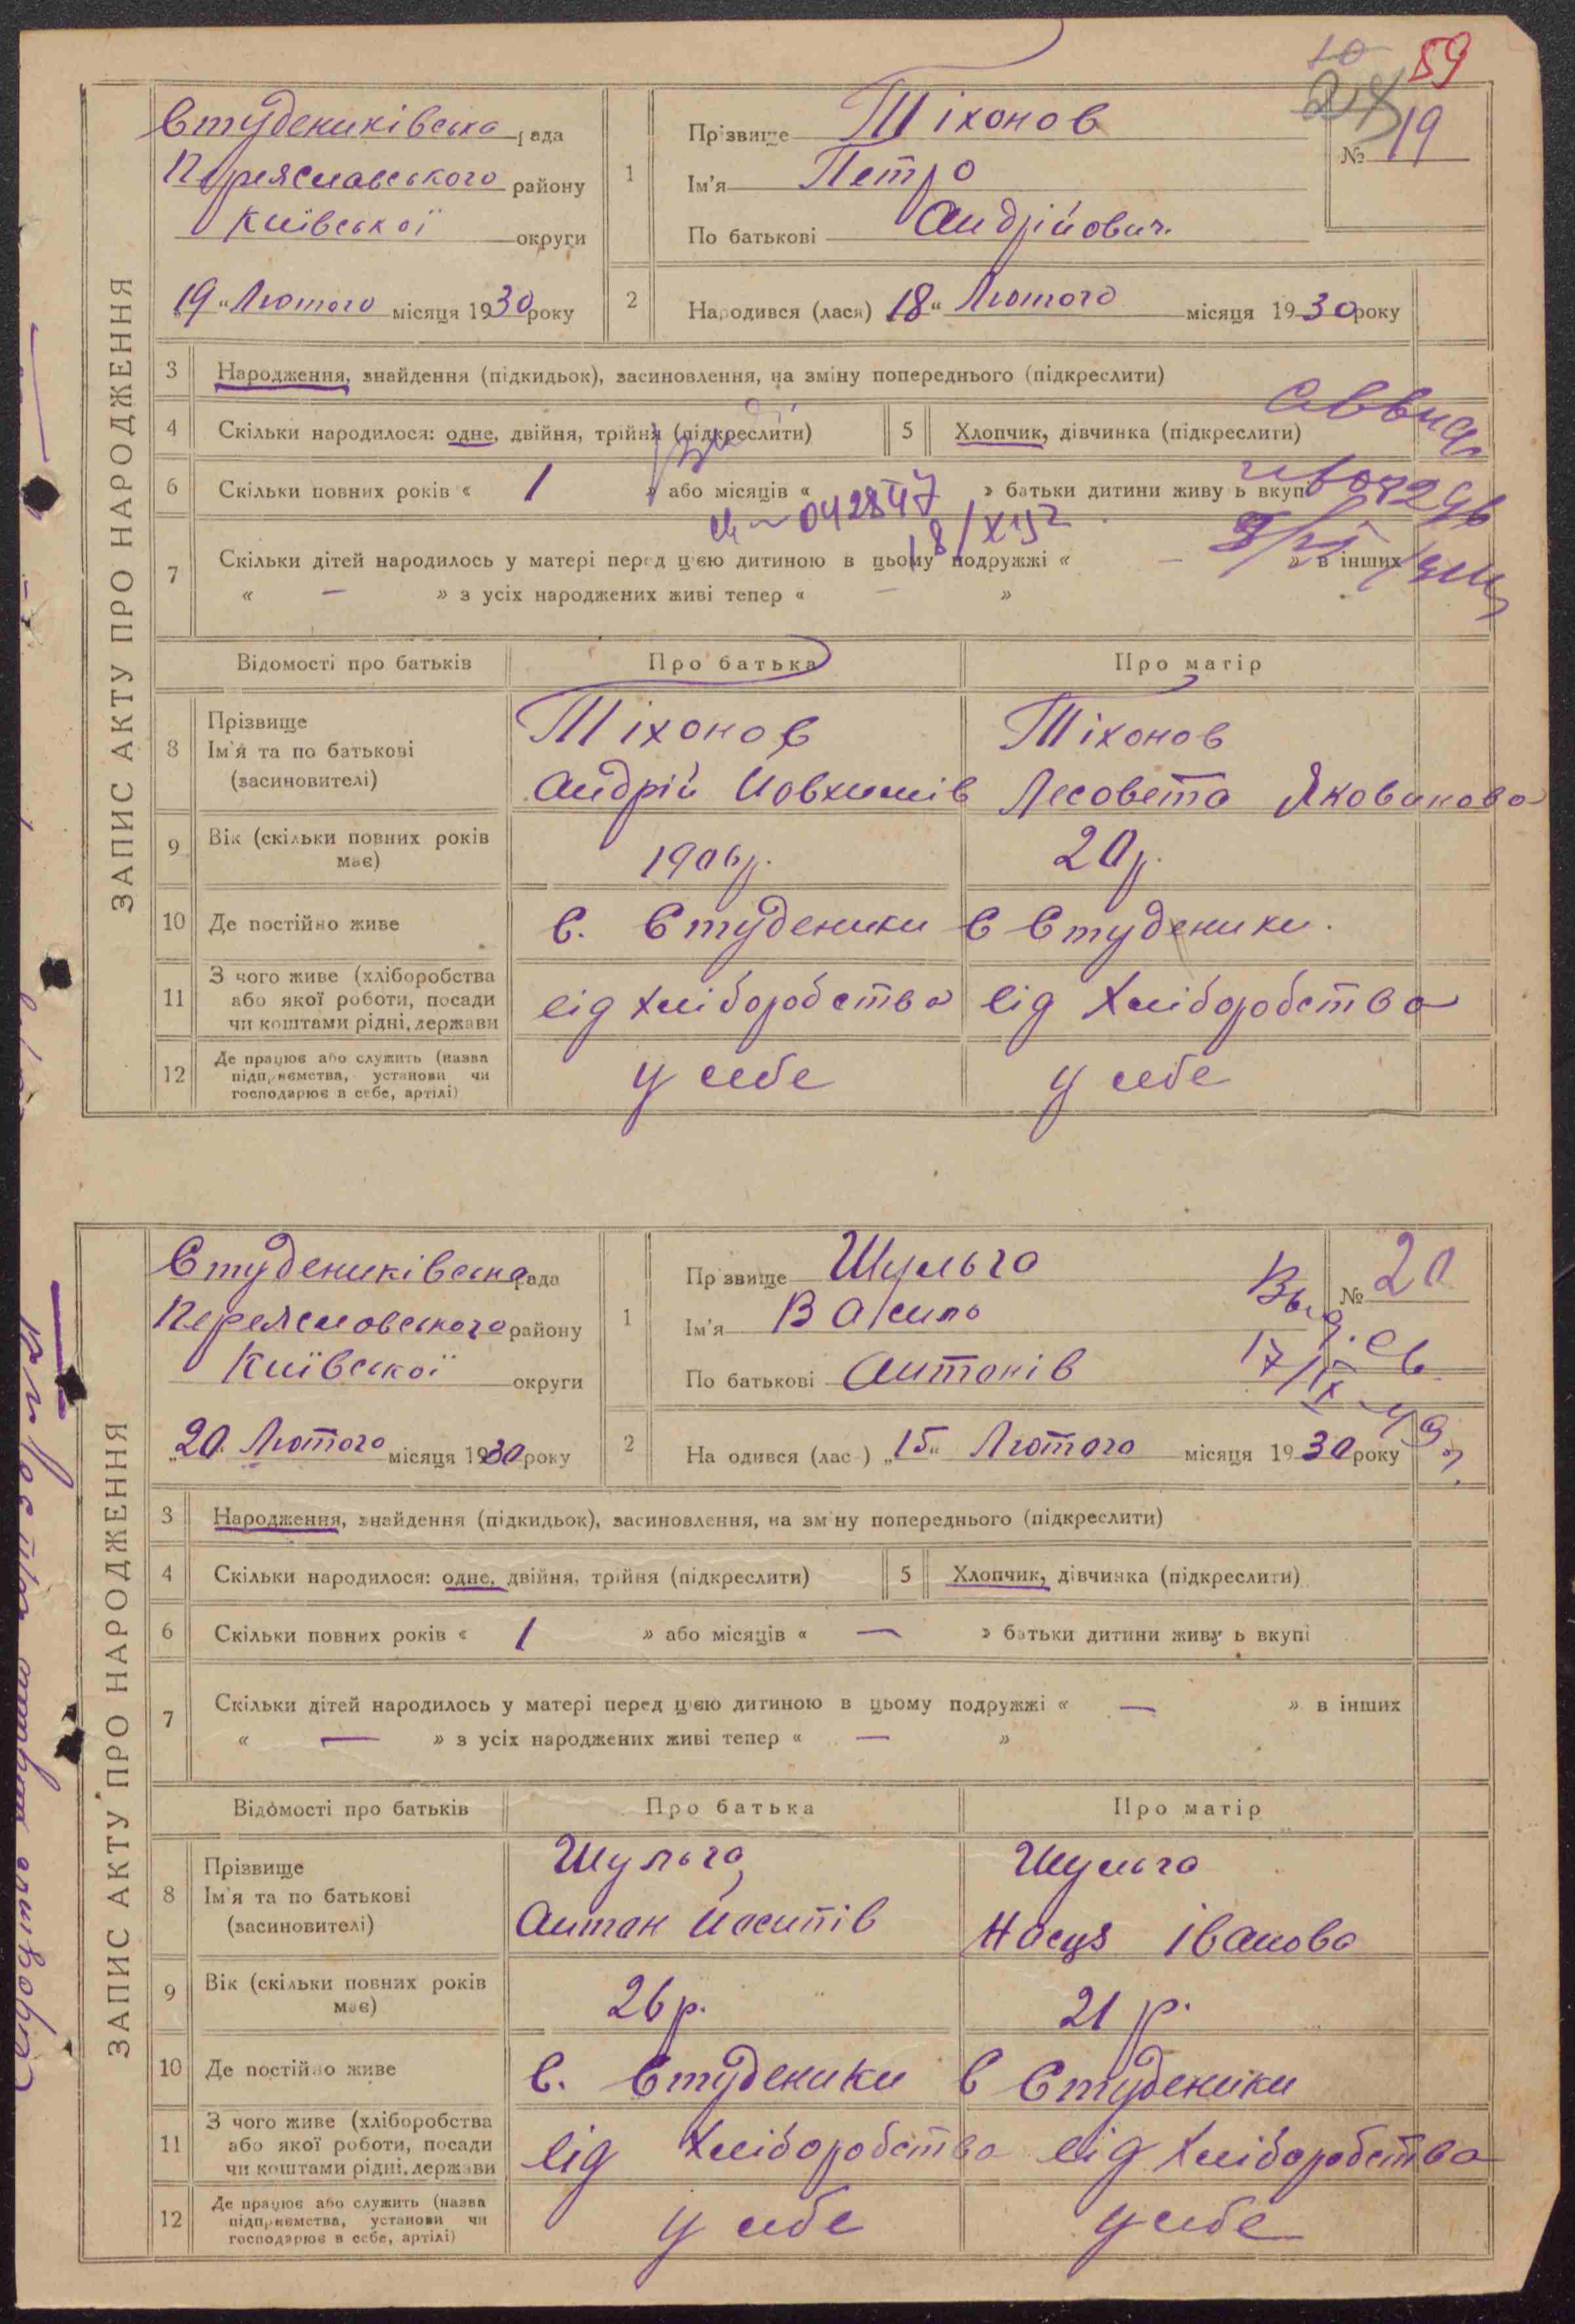 59
19
ЗАПИС АКТУ ПРО НАРОДЖЕННЯ
Студениківська рада
Переяславського району
Київської округи
„19“ Лютого місяця 1930 року
1
Прізвище Тіхонов
Ім'я Петро
По батькові Андрійович.
№ 19
2
Народився (лася) 18“ Лютого місяця 1930 року
3 Народження, знайдення (підкидьок), засиновлення, на зміну попереднього (підкреслити)
4 Скільки народилося: одне, двійня, трійня (підкреслити)
5 Хлопчик, дівчинка (підкреслити)
6 Скільки повних років « 1 » або місяців « » батьки дитини живуть вкупі
042847
7 Скільки дітей народилось у матері перед цією дитиною в цьому подружжі « — » в інших
« — » з усіх народжених живі тепер « — »
Відомості про батьків Про батька Про матір
8 Прізвище
Ім'я та по батькові
(засиновителі)
Тіхонов Тіхонов
Андрій Йовхимів Лесовета Яковинова
9 Вік (скільки повних років має) 1906р. 20р.
10 Де постійно живе с. Студеники с Студеники.
11 З чого живе (хліборобства
або якої роботи, посади
чи коштами рідні, держави
від хліборобства від хліборобства
12 Де працює або служить (назва
підприємства, установи чи
господарює в себе, артілі)
у себе у себе
ЗАПИС АКТУ ПРО НАРОДЖЕННЯ
Студениківська рада
Переясловського району
Київської округи
„20. Лютого місяця 1930 року
1
Прізвище Шульга
Ім'я Василь
По батькові Антонів
№ 20
2
Народився (лася) „15“ Лютого місяця 1930 року
3 Народження, знайдення (підкидьок), засиновлення, на зміну попереднього (підкреслити)
4 Скільки народилося: одне, двійня, трійня (підкреслити)
5 Хлопчик, дівчинка (підкреслити)
6 Скільки повних років « 1 » або місяців « — » батьки дитини живуть вкупі
7 Скільки дітей народилось у матері перед цією дитиною в цьому подружжі « — » в інших
« — » з усіх народжених живі тепер « — »
Відомості про батьків Про батька Про матір
8 Прізвище
Ім'я та по батькові
(засиновителі)
Шульга Шульга
Антон Йосипів Насця Іванова
9 Вік (скільки повних років має) 26р. 21р.
10 Де постійно живе с. Студеники с Студеники
11 З чого живе (хліборобства
або якої роботи, посади
чи коштами рідні, держави
від хліборобства від хліборобства
12 Де працює або служить (назва
підприємства, установи чи
господарює в себе, артілі)
у себе у себе